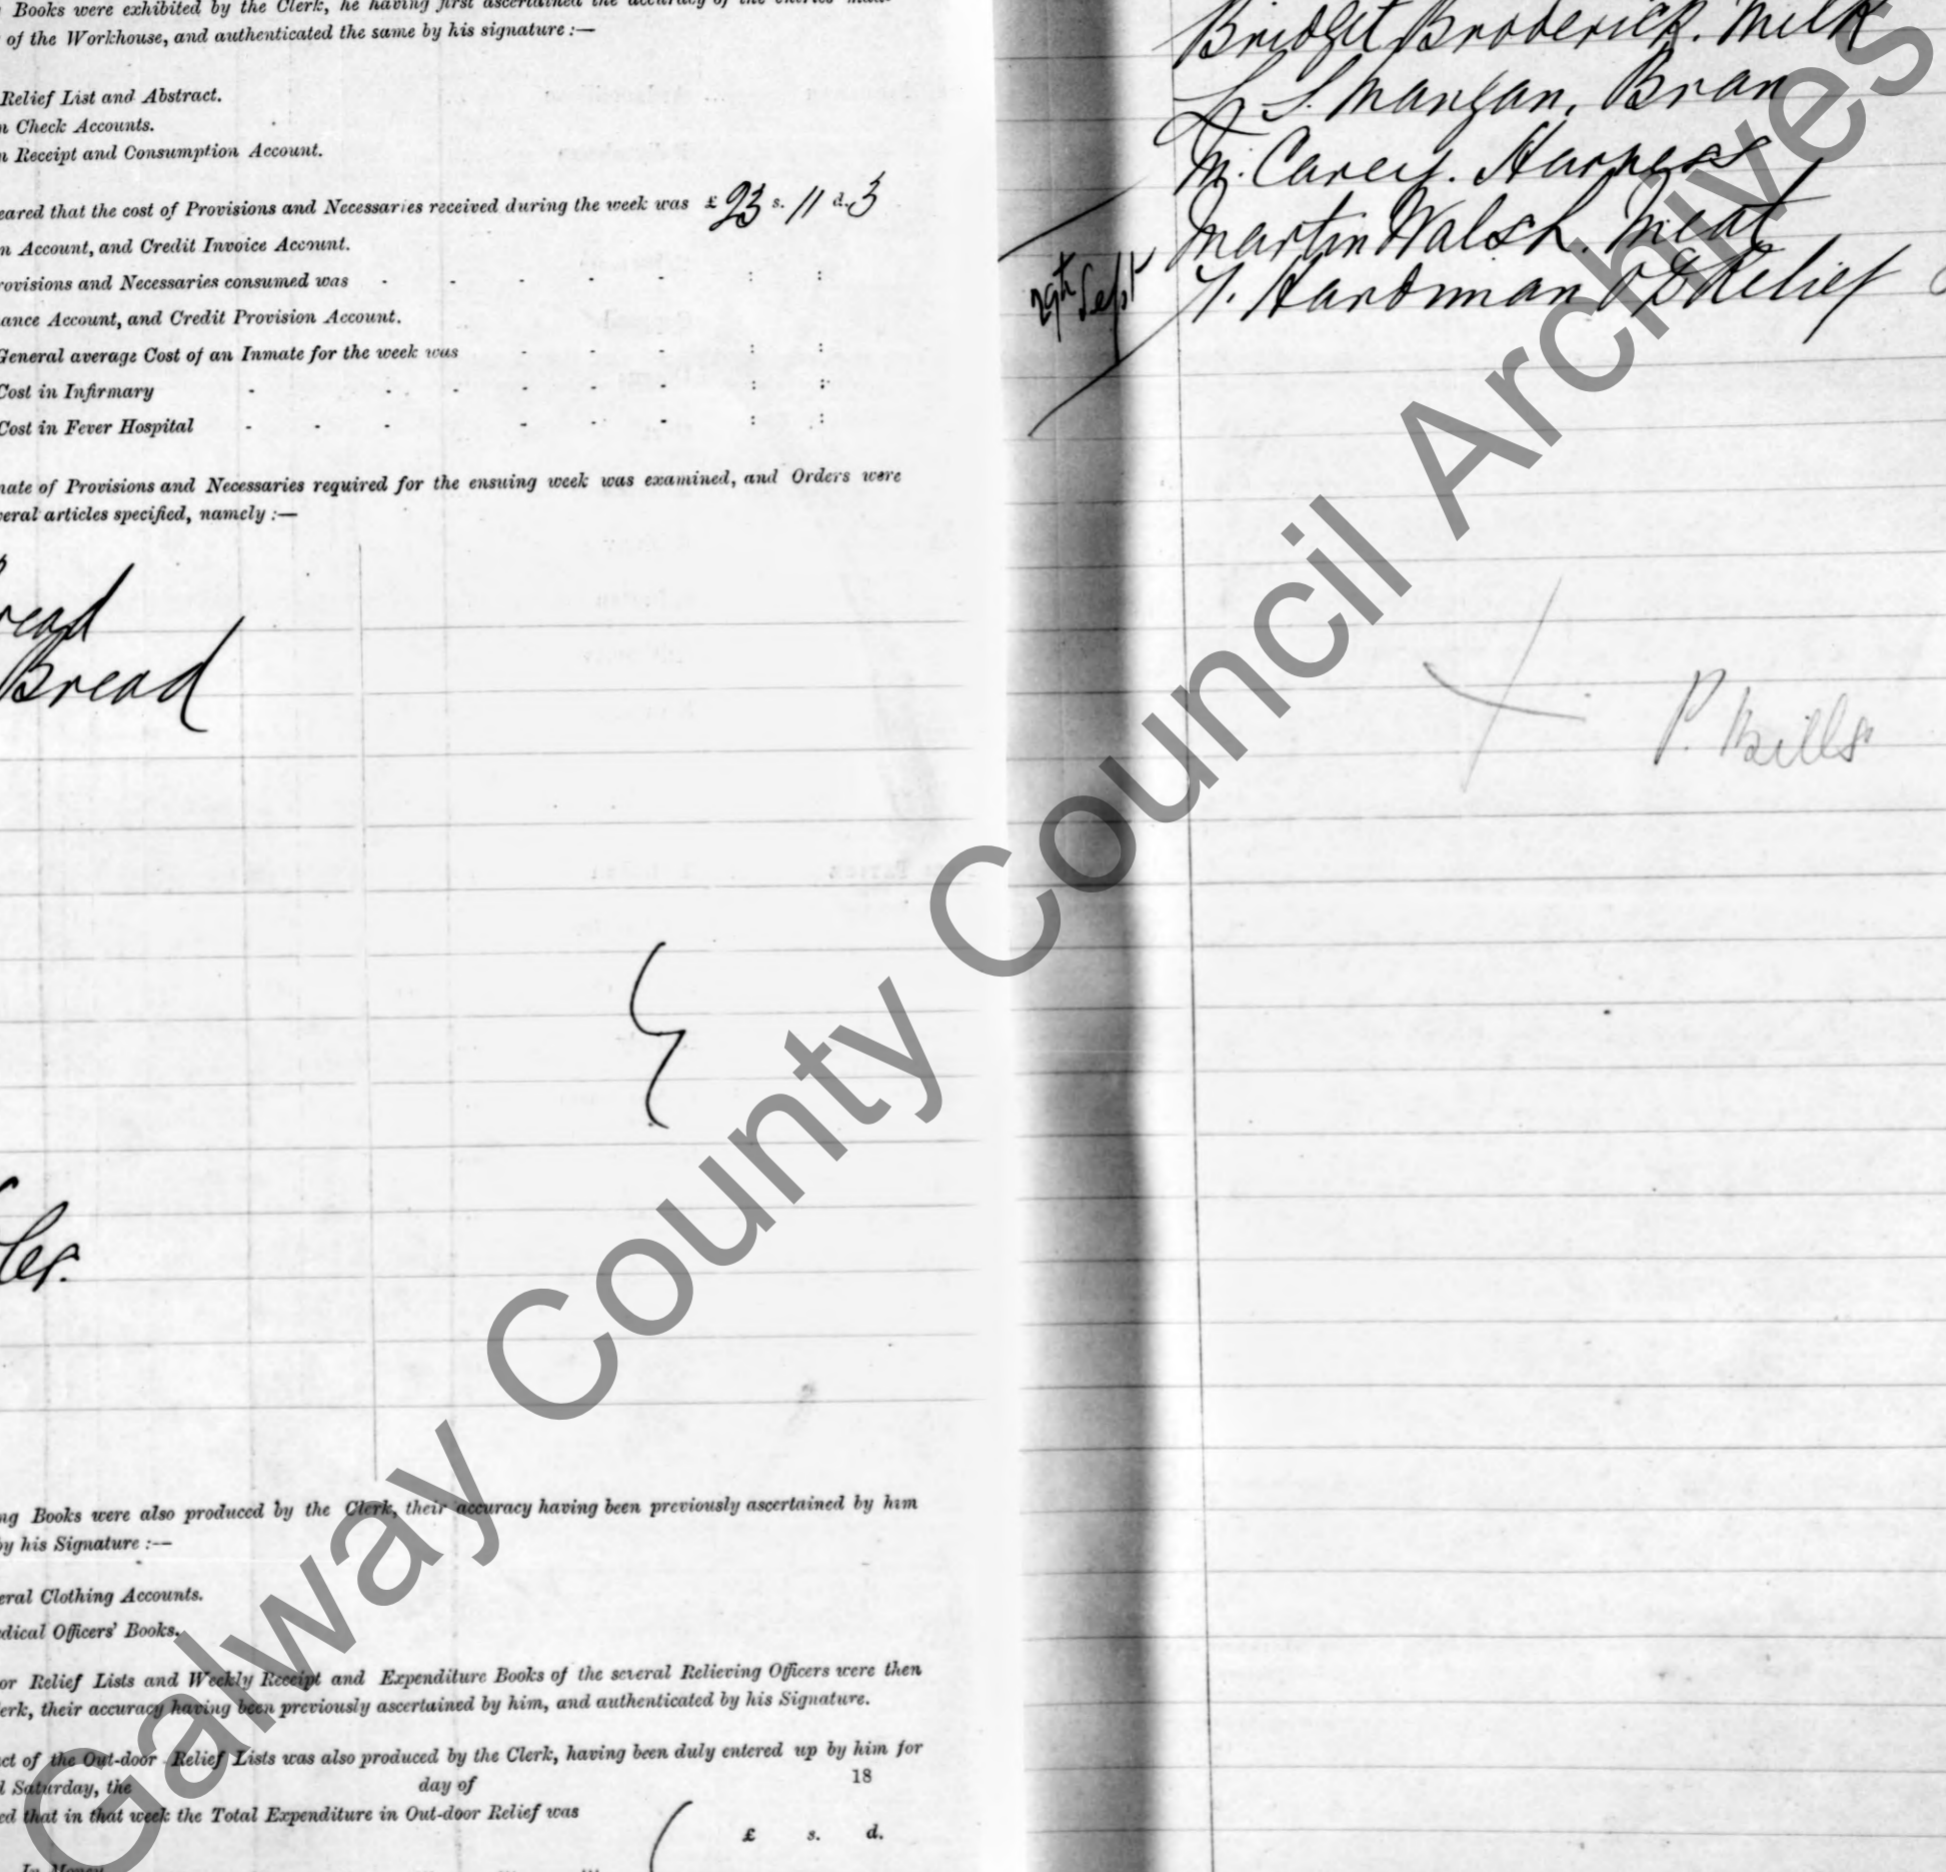 Books were exhibited by the Clerk, he having first ascertained the accuracy of the entries
of the Workhouse, and authenticated the same by his signature :—
Relief List and Abstract.
n Check Accounts.
n Receipt and Consumption Account.
eared that the cost of Provisions and Necessaries received during the week was £23 s. 11 d. 3
n Account, and Credit Invoice Account.
rovisions and Necessaries consumed was - - - - - : :
ance Account, and Credit Provision Account.
General average Cost of an Inmate for the week was - - - : :
Cost in Infirmary - - - - - - : :
Cost in Fever Hospital - - - - - - : :
nate of Provisions and Necessaries required for the ensuing week was examined, and Orders were
veral articles specified, namely :—
read
Bread
les.
ng Books were also produced by the Clerk, their accuracy having been previously ascertained by him
by his Signature :—
eral Clothing Accounts.
dical Officers' Books.
or Relief Lists and Weekly Receipt and Expenditure Books of the several Relieving Officers were then
erk, their accuracy having been previously ascertained by him, and authenticated by his Signature.
ct of the Out-door Relief Lists was also produced by the Clerk, having been duly entered up by him for
d Saturday, the day of 18
ed that in that week the Total Expenditure in Out-door Relief was
£ s. d.
In Money
Bridget Broderick. Milk
Mangan, Bran
M. Carey. Harness
Martin Walsh. Meat
29th Sept
Hardman O D Relief
P. Mills
Galway County Council Archives